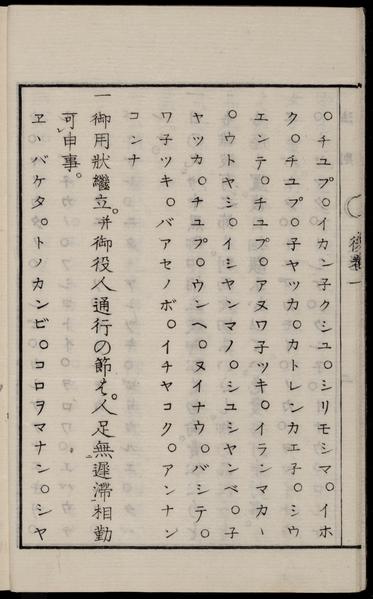 ○チユプ。イカン子クシユ。シリモシマ。イホ
ク。チユプ。子ヤツカ。カトレンカエ子。シウ
エンテ。チユプ。アヌワ子ツキ。イランマカヽ
。ウトヤシ。イシヤンマノ。シユシヤンベ。子
ヤツカ。チユプ。ウンヘ。ヌイナウ。バシテ。
ワ子ツキ。バアセノボ。イチヤコク。アンナン
コンナ
一御用狀繼立。幷御役人通行の節は。人足無遲滯相勤
可申事。
ヱヽバケタ。トノカンビ。コロヲマナン。シヤ